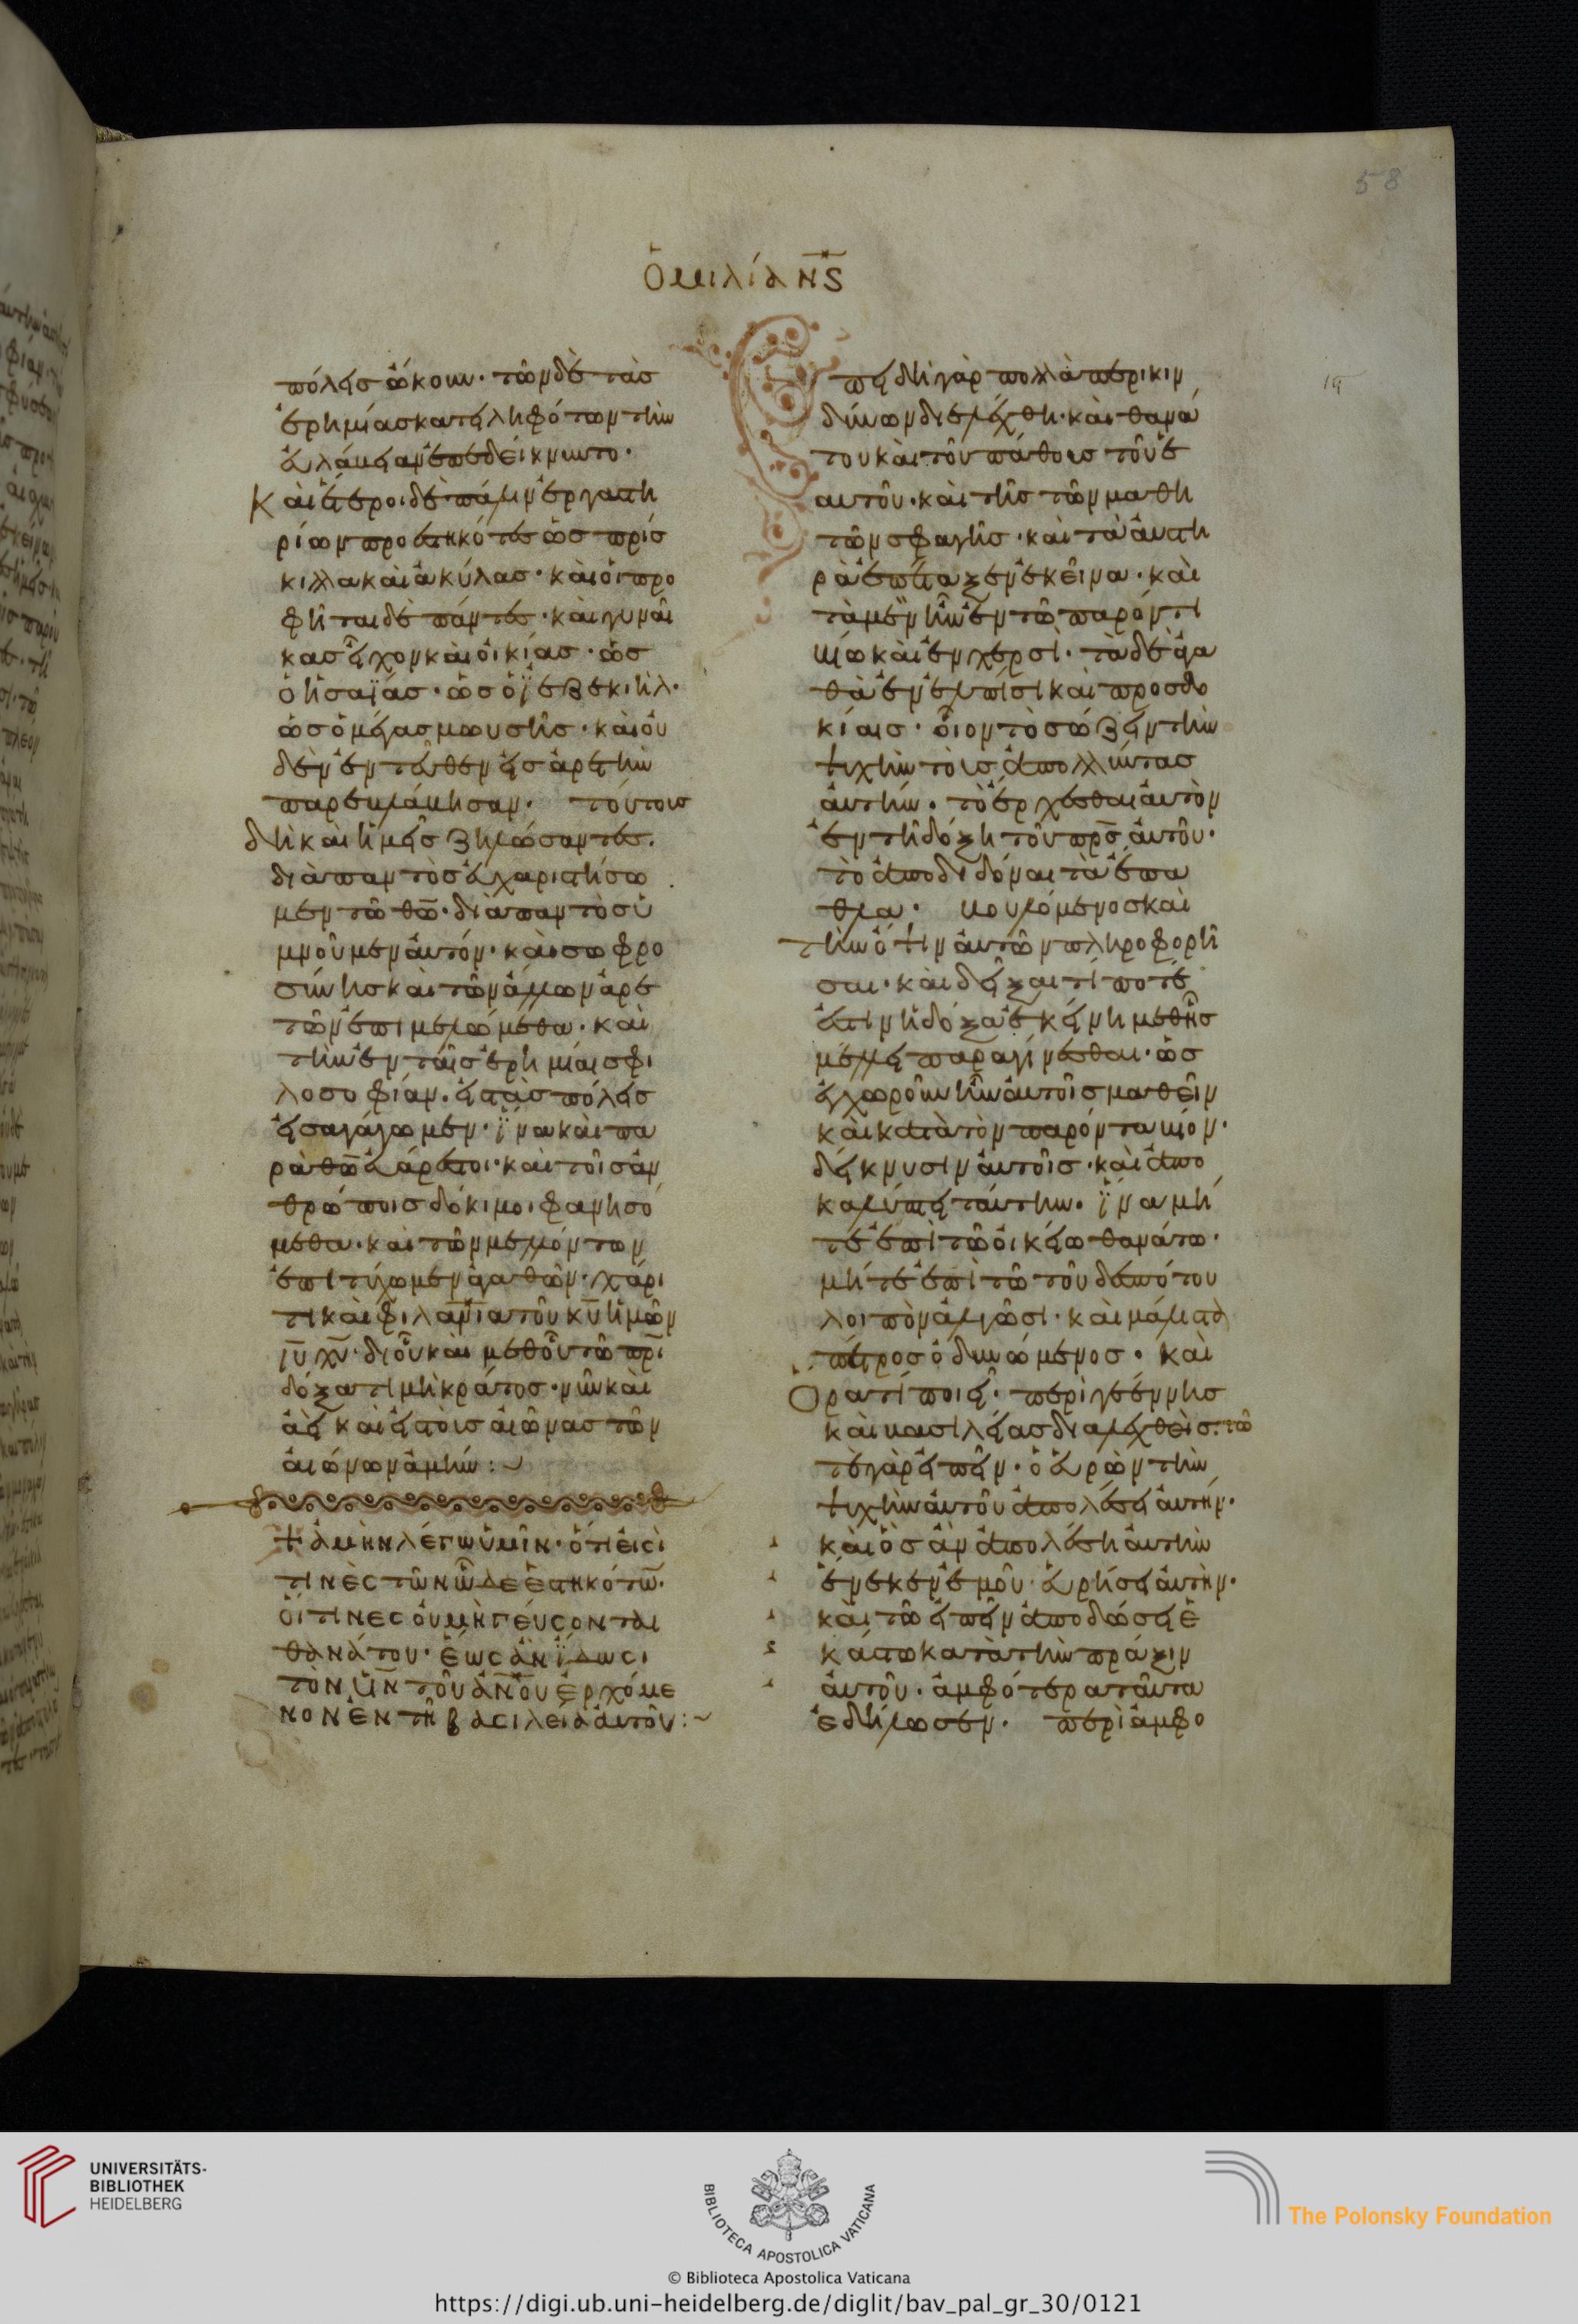 58
Ὁμιλία Νϛ
πόλεις ᾤκουν· τῶν δὲ τὰς
ἐρημίας κατειληφότων τὴν
εὐλάβειαν ἐπεδείκνυντο·
Καὶ ἕτεροι δὲ πάλιν ἐργαστη
ρίων προεστηκότες ὡς πρίσ
κιλλα καὶ ἀκύλας· καὶ οἱ προ
φῆται δὲ πάντες· καὶ γυναῖ
κας εἶχον καὶ οἰκίας· ὡς
ὁ ἡσαΐας· ὡς ὁ ϊεζεκιήλ·
ὡς ὁ μέγας μωυσῆς· καὶ οὐ
δὲν ἐντεῦθεν εἰς ἀρετὴν
παρεβλάβησαν. τούτους
δὴ καὶ ἡμεῖς ζηλώσαντες.
διὰ παντὸς εὐχαριστήσω
μεν τῷ θω̅· διὰ παντὸς ὑ
μνοῦμεν αὐτόν· καὶ σωφρο
σύνης καὶ τῶν ἄλλων ἀρε
τῶν ἐπιμελώμεθα· καὶ
τὴν ἐν ταῖς ἐρημίαις φι
λοσοφίαν. εἰς τὰς πόλεις
εἰσαγάγωμεν· ἵνα καὶ πα
ρὰ θω̅ εὐάρεστοι· καὶ τοῖς ἀν
θρώποις δόκιμοι φανησό
μεθα· καὶ τῶν μελλόντων
ἐπιτύχωμεν ἀγαθῶν· χάρι
τι καὶ φιλανι̅α τοῦ κυ̅ ἡμῶν
ιυ̅ χυ̅· δι οὗ καὶ μεθ οὗ τῷ πρι̅
δόξα τιμὴ κράτος· νῦν καὶ
ἀεὶ καὶ εἰς τοὺς αἰῶνας τῶν
αἰώνων ἀμήν:~
+ ἀμὴν λέγω ὑμῖν· ὅτι εἰσὶ
τινὲς τῶν ὧδε ἑστηκότω̅·
οἵτινες οὐ μὴ γεύσονται
θανάτου· ἕως ἂν ἴδωσι
τὸν υν̅ τοῦ ἀνο̅υ ἐρχόμε
νον ἐν τῇ βασιλείᾳ αὐτοῦ:~
Ἐπειδὴ γὰρ πολλὰ περὶ κιν
δύνων διελέχθη· καὶ θανά
του καὶ τοῦ πάθους τοῦ ἑ
αυτοῦ· καὶ τῆς τῶν μαθη
τῶν σφαγῆς· καὶ τὰ αὐστη
ρὰ ἐπέταξεν ἐκεῖνα· καὶ
τὰ μὲν ἦν ἐν τῷ παρόντι
βίῳ καὶ ἐν χερσί· τὰ δὲ ἀγα
θὰ ἐν ἐλπίσι καὶ προσδο
κίαις· οἷον τὸ σώζειν τὴν
ψυχὴν τοὺς ἀπολλύντας
αὐτήν. τὸ ἔρχεσθαι αὐτὸν
ἐν τῇ δόξῃ τοῦ πρς̅ αὐτοῦ·
τὸ ἀποδιδόναι τὰ ἔπα
θλα· βουλόμενος καὶ
τὴν ὄψιν αὐτῶν πληροφορῆ
σαι· καὶ δεῖξαι τί ποτέ
ἐστιν ἡ δόξα ἐκείνη μεθ ἧς
μέλλει παραγίνεσθαι· ὡς
ἐγχωροῦν ἦν αὐτοῖς μαθεῖν
καὶ κατὰ τὸν παρόντα βίον·
δείκνυσιν αὐτοῖς· καὶ ἀπο
καλύπτει ταύτην. ἵνα μή
τε ἐπὶ τῷ οἰκείω θανάτω·
μήτε ἐπὶ τῷ τοῦ δεσπότου
λοιπὸν ἀλγῶσι· καὶ μάλιστα
πέτρος ὀδυνώμενος· Καὶ
Ὅρα τί ποιεῖ· περὶ γεέννης
καὶ βασιλείας διαλεχθείς· τῶ
τε γὰρ εἰπεῖν· ὁ εὑρὼν τὴν
ψυχὴν αὐτοῦ ἀπολέσει αὐτήν·
καὶ ὃς ἂν ἀπολέσῃ αὐτὴν
ἕνεκεν ἐμοῦ· εὑρήσει αὐτήν·
καὶ τῷ εἰπεῖν ἀποδώσει ἑ
κάστω κατὰ τὴν πρᾶξιν
αὐτοῦ· ἀμφότερα ταῦτα
ἐδήλωσεν· περὶ ἀμφο
UNIVERSITÄTS-
BIBLIOTHEK
HEIDELBERG
BIBLIOTECA APOSTOLICA VATICANA
© Biblioteca Apostolica Vaticana
The Polonsky Foundation
https://digi.ub.uni-heidelberg.de/diglit/bav_pal_gr_30/0121